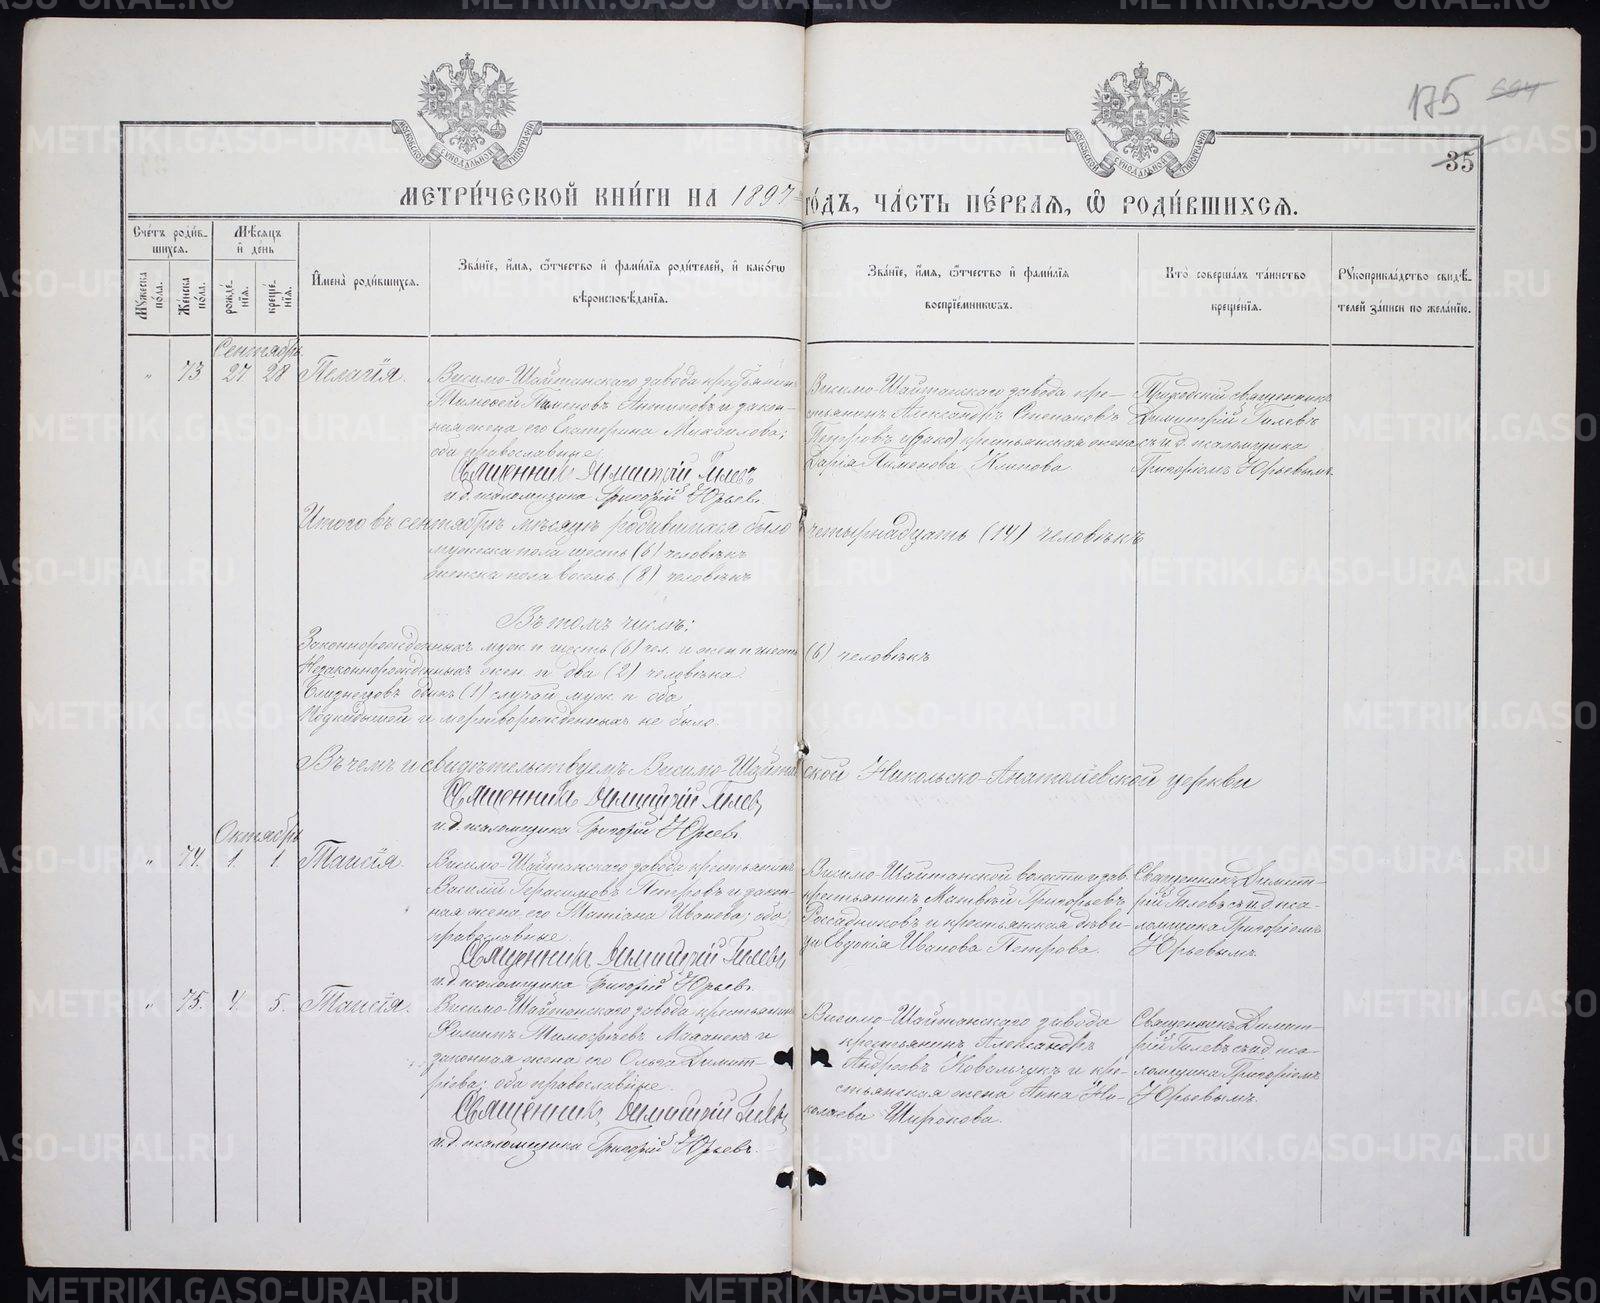 175 664
35
МОСКОВСКОЙ СѴНОДАЛЬНОЙ ТИПОГРАФІИ
МОСКОВСКОЙ СѴНОДАЛЬНОЙ ТИПОГРАФІИ
МЕТРИ́ЧЕСКОЙ КНИ́ГИ НА 1897 ГО́ДЪ, ЧА́СТЬ ПЕ́РВАЯ, Ѡ РОДИ́ВШИХСЯ.
Сче́тъ роди́в-
шихся.
Му́жеска по́ла.
Же́нска по́ла.
Мѣ́сяцъ
и҆ де́нь
рожде́-
нїя.
креще́-
нїя.
И҆мена̀ роди́вшихся.
Зва́нїе, и҆́мя, ѻ҆́тчество и҆ фами́лїя роди́телей, и҆ како́гѡ
вѣроисповѣ́данїя.
Зва́нїе, и҆́мя, ѻ҆́тчество и҆ фами́лїя
воспрїе́мниковъ.
Кто̀ соверша́лъ та́инство
креще́нїя.
Рукоприкла́дство свидѣ́-
телей за́писи по жела́нїю.
Сентябрь.
" 73 27 28 Пелагія.
Висимо-Шайтанскаго завода крестьянинъ
Тимоѳей Пименовъ Антиповъ и закон-
ная жена его Екатерина Михаилова;
оба православные.
Священникъ Димитрій Гилевъ
и.д. псаломщика Григорій Юрьевъ.
Висимо-Шайтанскаго завода кре-
стьянинъ Александръ Степановъ
Петровъ и крестьянская жена
Дарія Пименова Климова.
Приходскій священникъ
Димитрій Гилевъ
съ и.д. псаломщика
Григоріемъ Юрьевымъ.
Итого въ сентябрѣ мѣсяцѣ родившихся было четырнадцать (14) человѣкъ
мужска пола шесть (6) человѣкъ
женска пола восемь (8) человѣкъ
Въ томъ числѣ:
Законнорожденныхъ муж. п. шесть (6) чел. и жен. п. шесть (6) человѣкъ
Незаконнорожденныхъ жен. п. два (2) человѣка.
Близнецовъ одинъ (1) случай муж. п. оба
Подкидышей и мертворожденныхъ не было.
Въ чемъ и свидѣтельствуемъ Висимо-Шайтанской Никольско-Анатоліевской церкви
Священникъ Димитрій Гилевъ
и.д. псаломщика Григорій Юрьевъ.
Октябрь.
" 74. 1. 1. Таисія.
Висимо-Шайтанскаго завода крестьянинъ
Василій Герасимовъ Петровъ и закон-
ная жена его Татіана Иванова; оба
православные.
Священникъ Димитрій Гилевъ
и.д. псаломщика Григорій Юрьевъ.
Висимо-Шайтанской волости и зав.
крестьянинъ Матвѣй Григорьевъ
Разсадниковъ и крестьянская дѣви-
ца Евдокія Иванова Петрова.
Священникъ Димит-
рій Гилевъ съ и.д. пса-
ломщика Григоріемъ
Юрьевымъ.
" 75. 4. 5. Таисія.
Висимо-Шайтанскаго завода крестьянинъ
Филиппъ Тимофѣевъ Маханекъ и
законная жена его Ольга Димит-
ріева; оба православные.
Священникъ Димитрій Гилевъ
и.д. псаломщика Григорій Юрьевъ.
Висимо-Шайтанскаго завода
крестьянинъ Александръ
Андреевъ Ковальчукъ и кре-
стьянская жена Анна Ни-
колаева Широкова.
Священникъ Димит-
рій Гилевъ съ и.д. пса-
ломщика Григоріемъ
Юрьевымъ.
METRIKI.GASO-URAL.RU